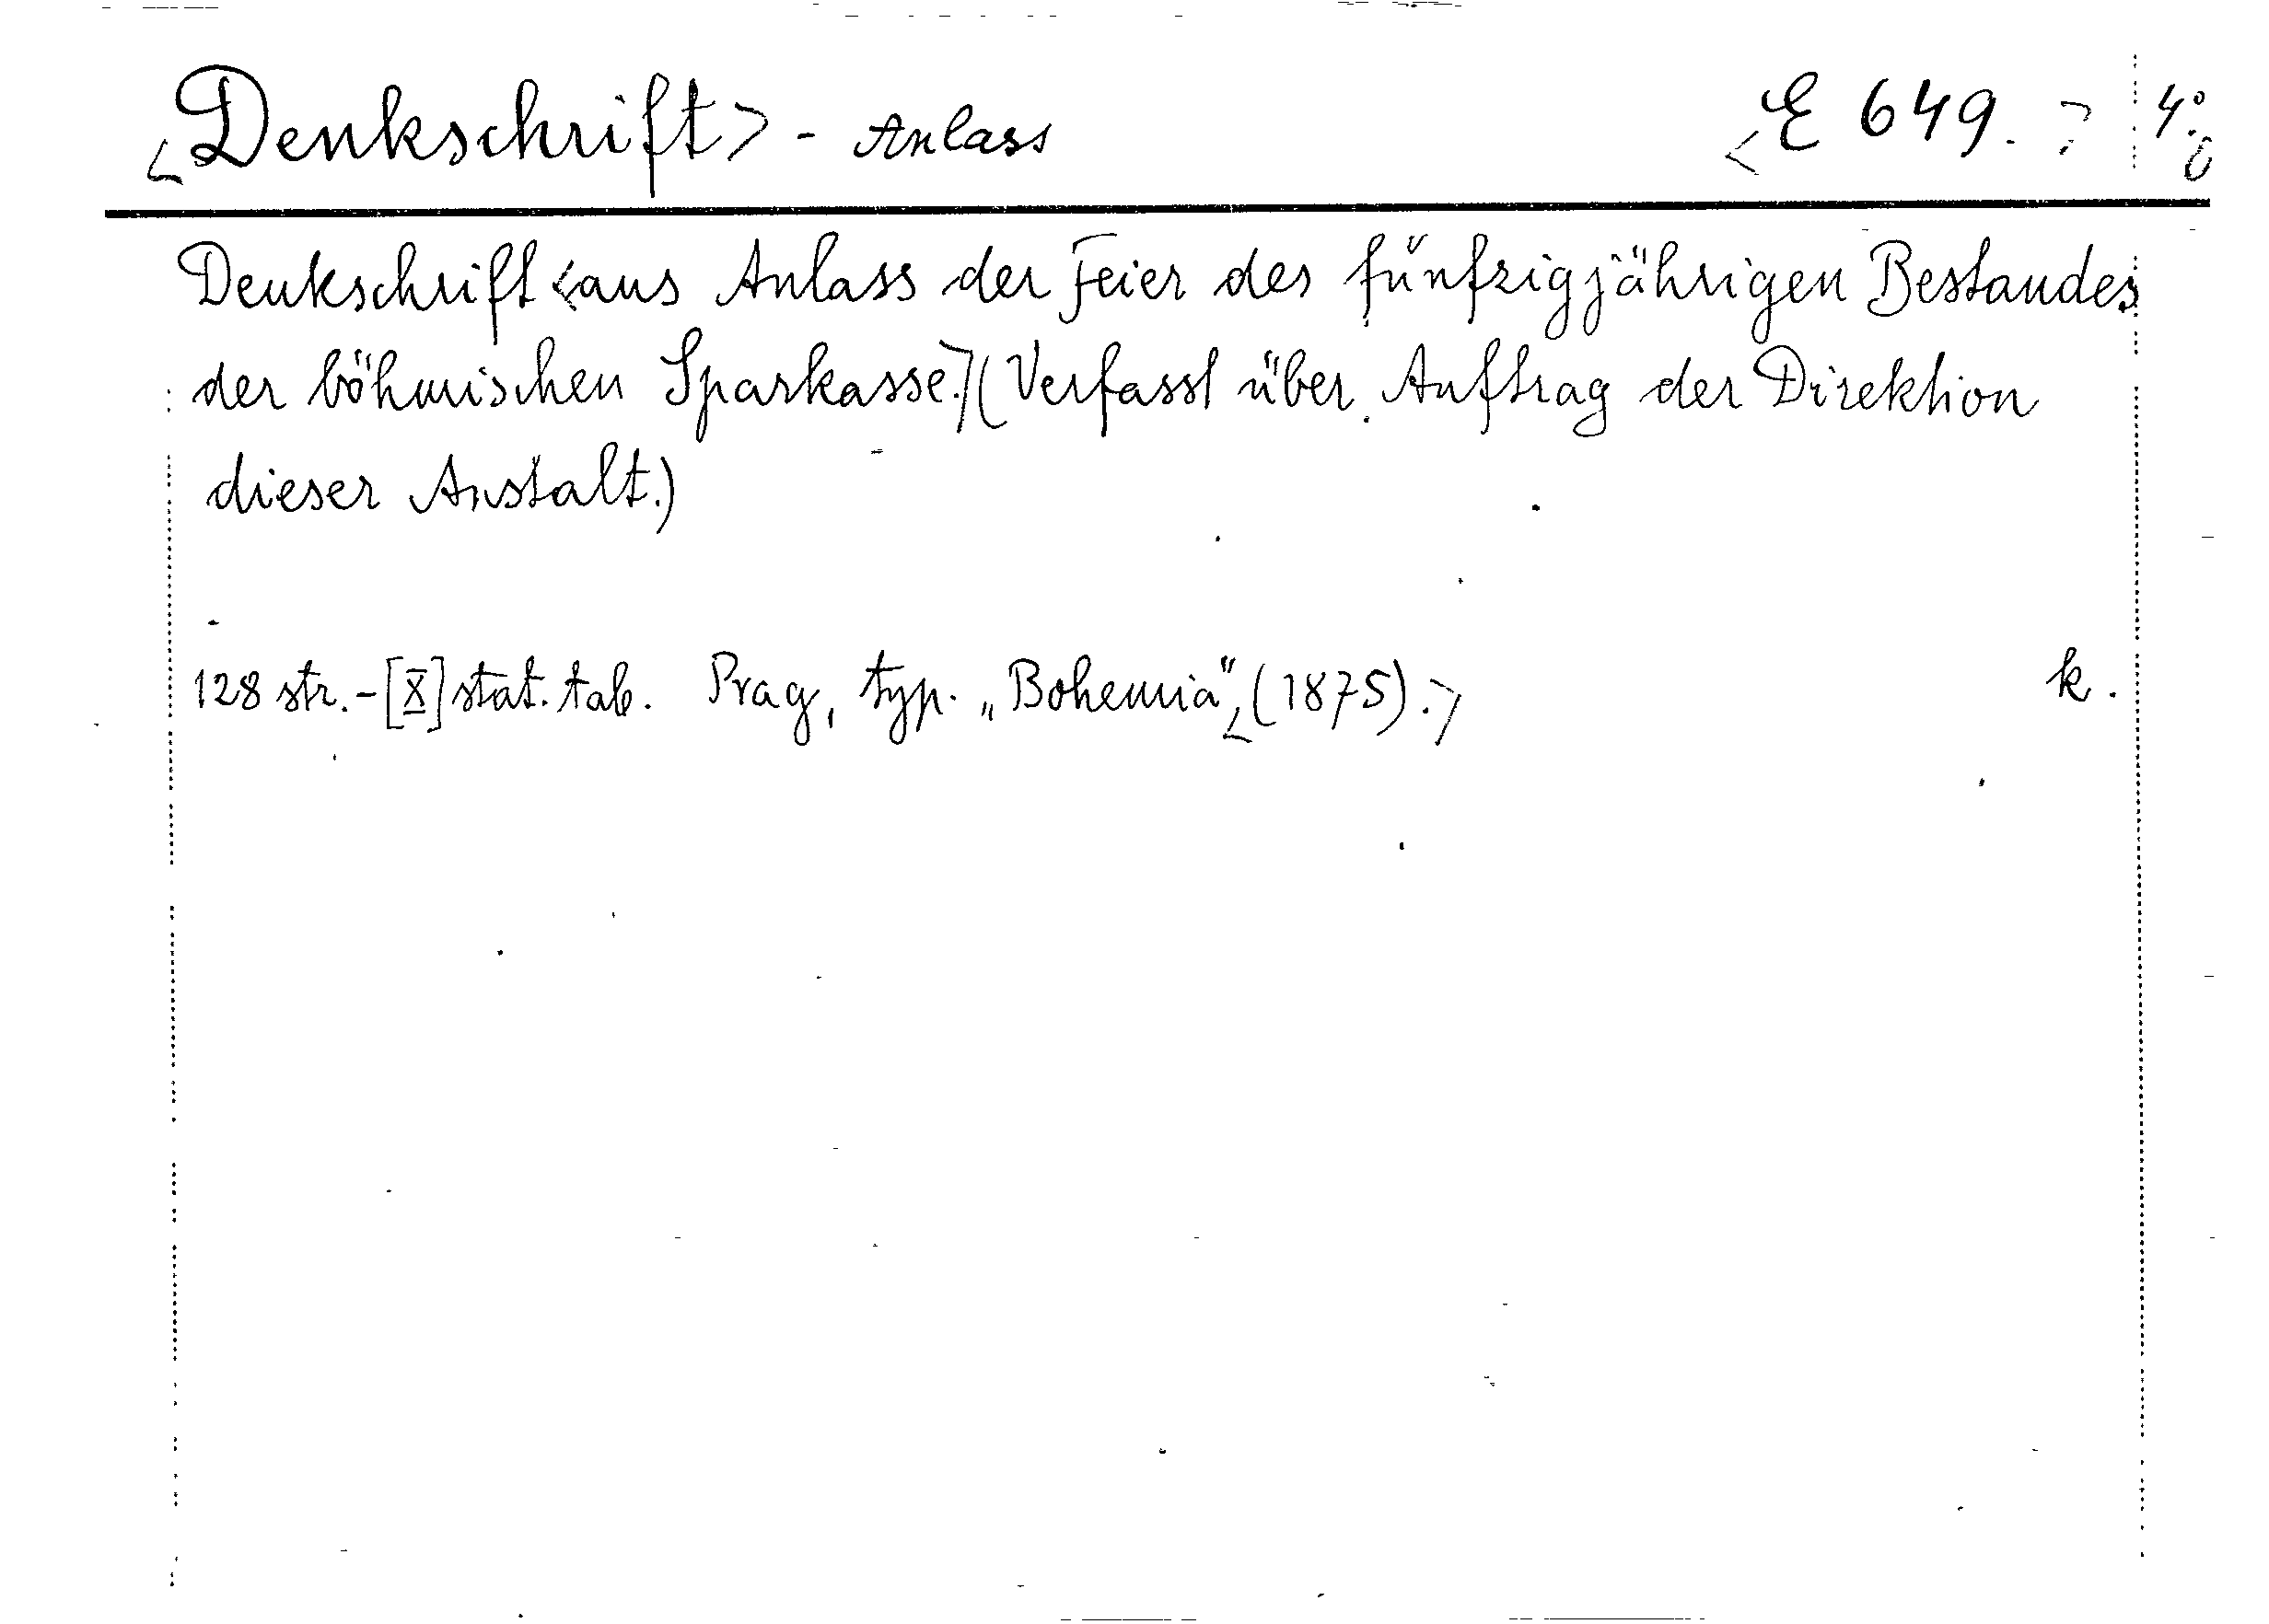 <Denkschrift> - Anlass <E 649.> 4°
Denkschrift <aus Anlass der Feier des fünfzigjährigen Bestandes
der böhmischen Sparkasse.> (Verfasst über Auftrag der Direktion
dieser Anstalt.)
128 str. - [X] stat. tab. Prag, typ. „Bohemia“, <(1875).> k.